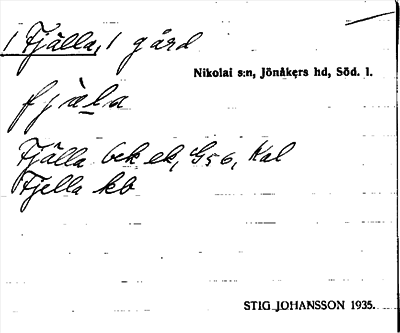 1 Fjälla, 1 gård
Nikolai s:n, Jönåkers hd, Söd. l.
fjä̀la
Fjälla bek ek, Gs 6, Kal
Fjella kb
STIG JOHANSSON 1935.